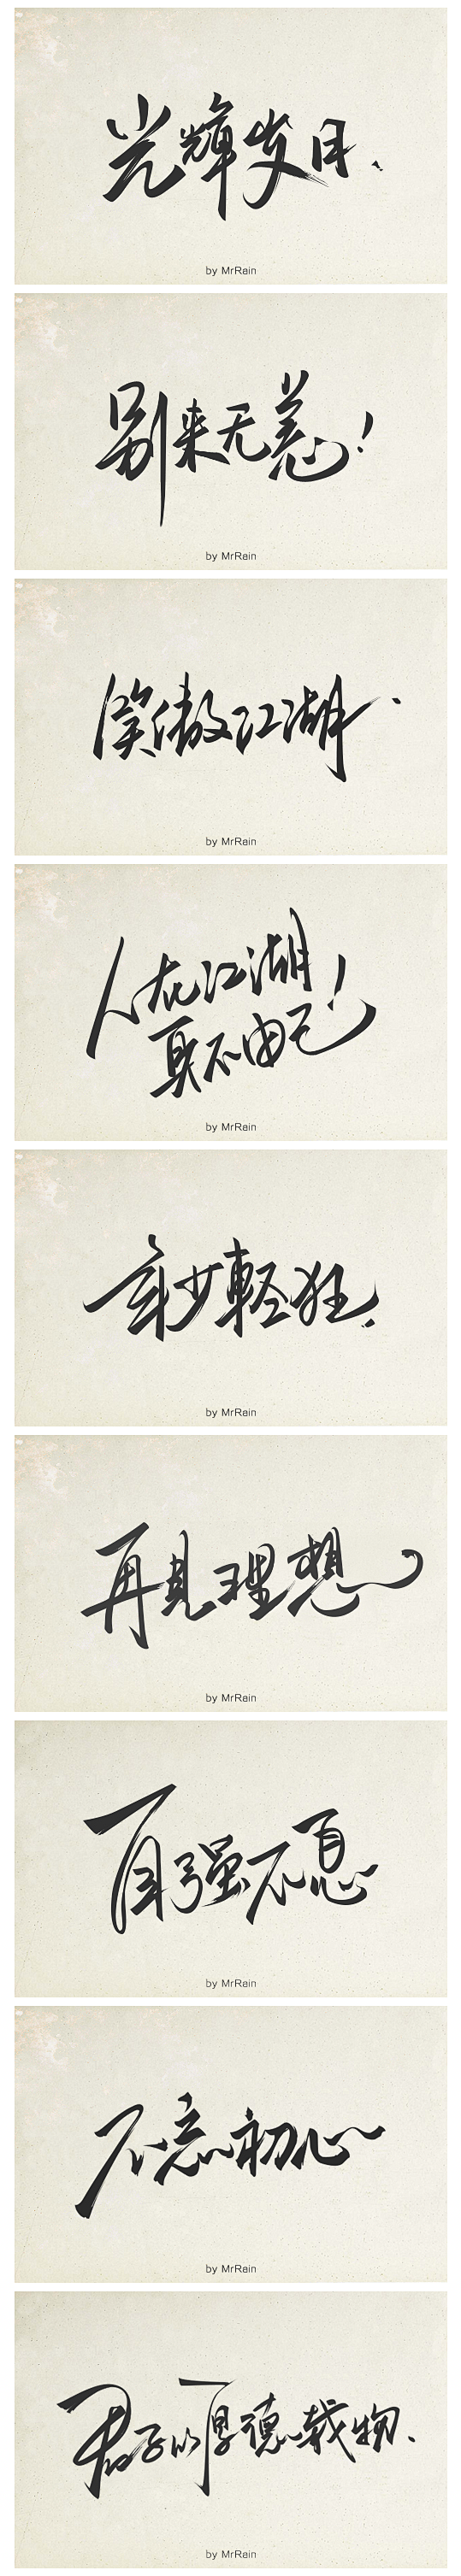 光輝岁月.
by MrRain
别来无恙!
by MrRain
笑傲江湖.
by MrRain
人在江湖
身不由己!
by MrRain
年少輕狂.
by MrRain
再見理想
by MrRain
自强不息
by MrRain
不忘初心
by MrRain
君子以厚德载物.
by MrRain